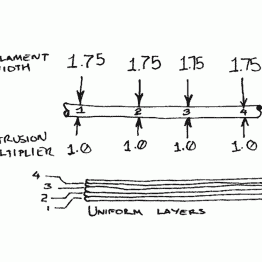 LAMENT
IDTH
1.75 1.75 1.75 1.75
1 2 3 4
TRUSION
LTIPLIER
1.0 1.0 1.0 1.0
4
3
2
1
UNIFORM LAYERS